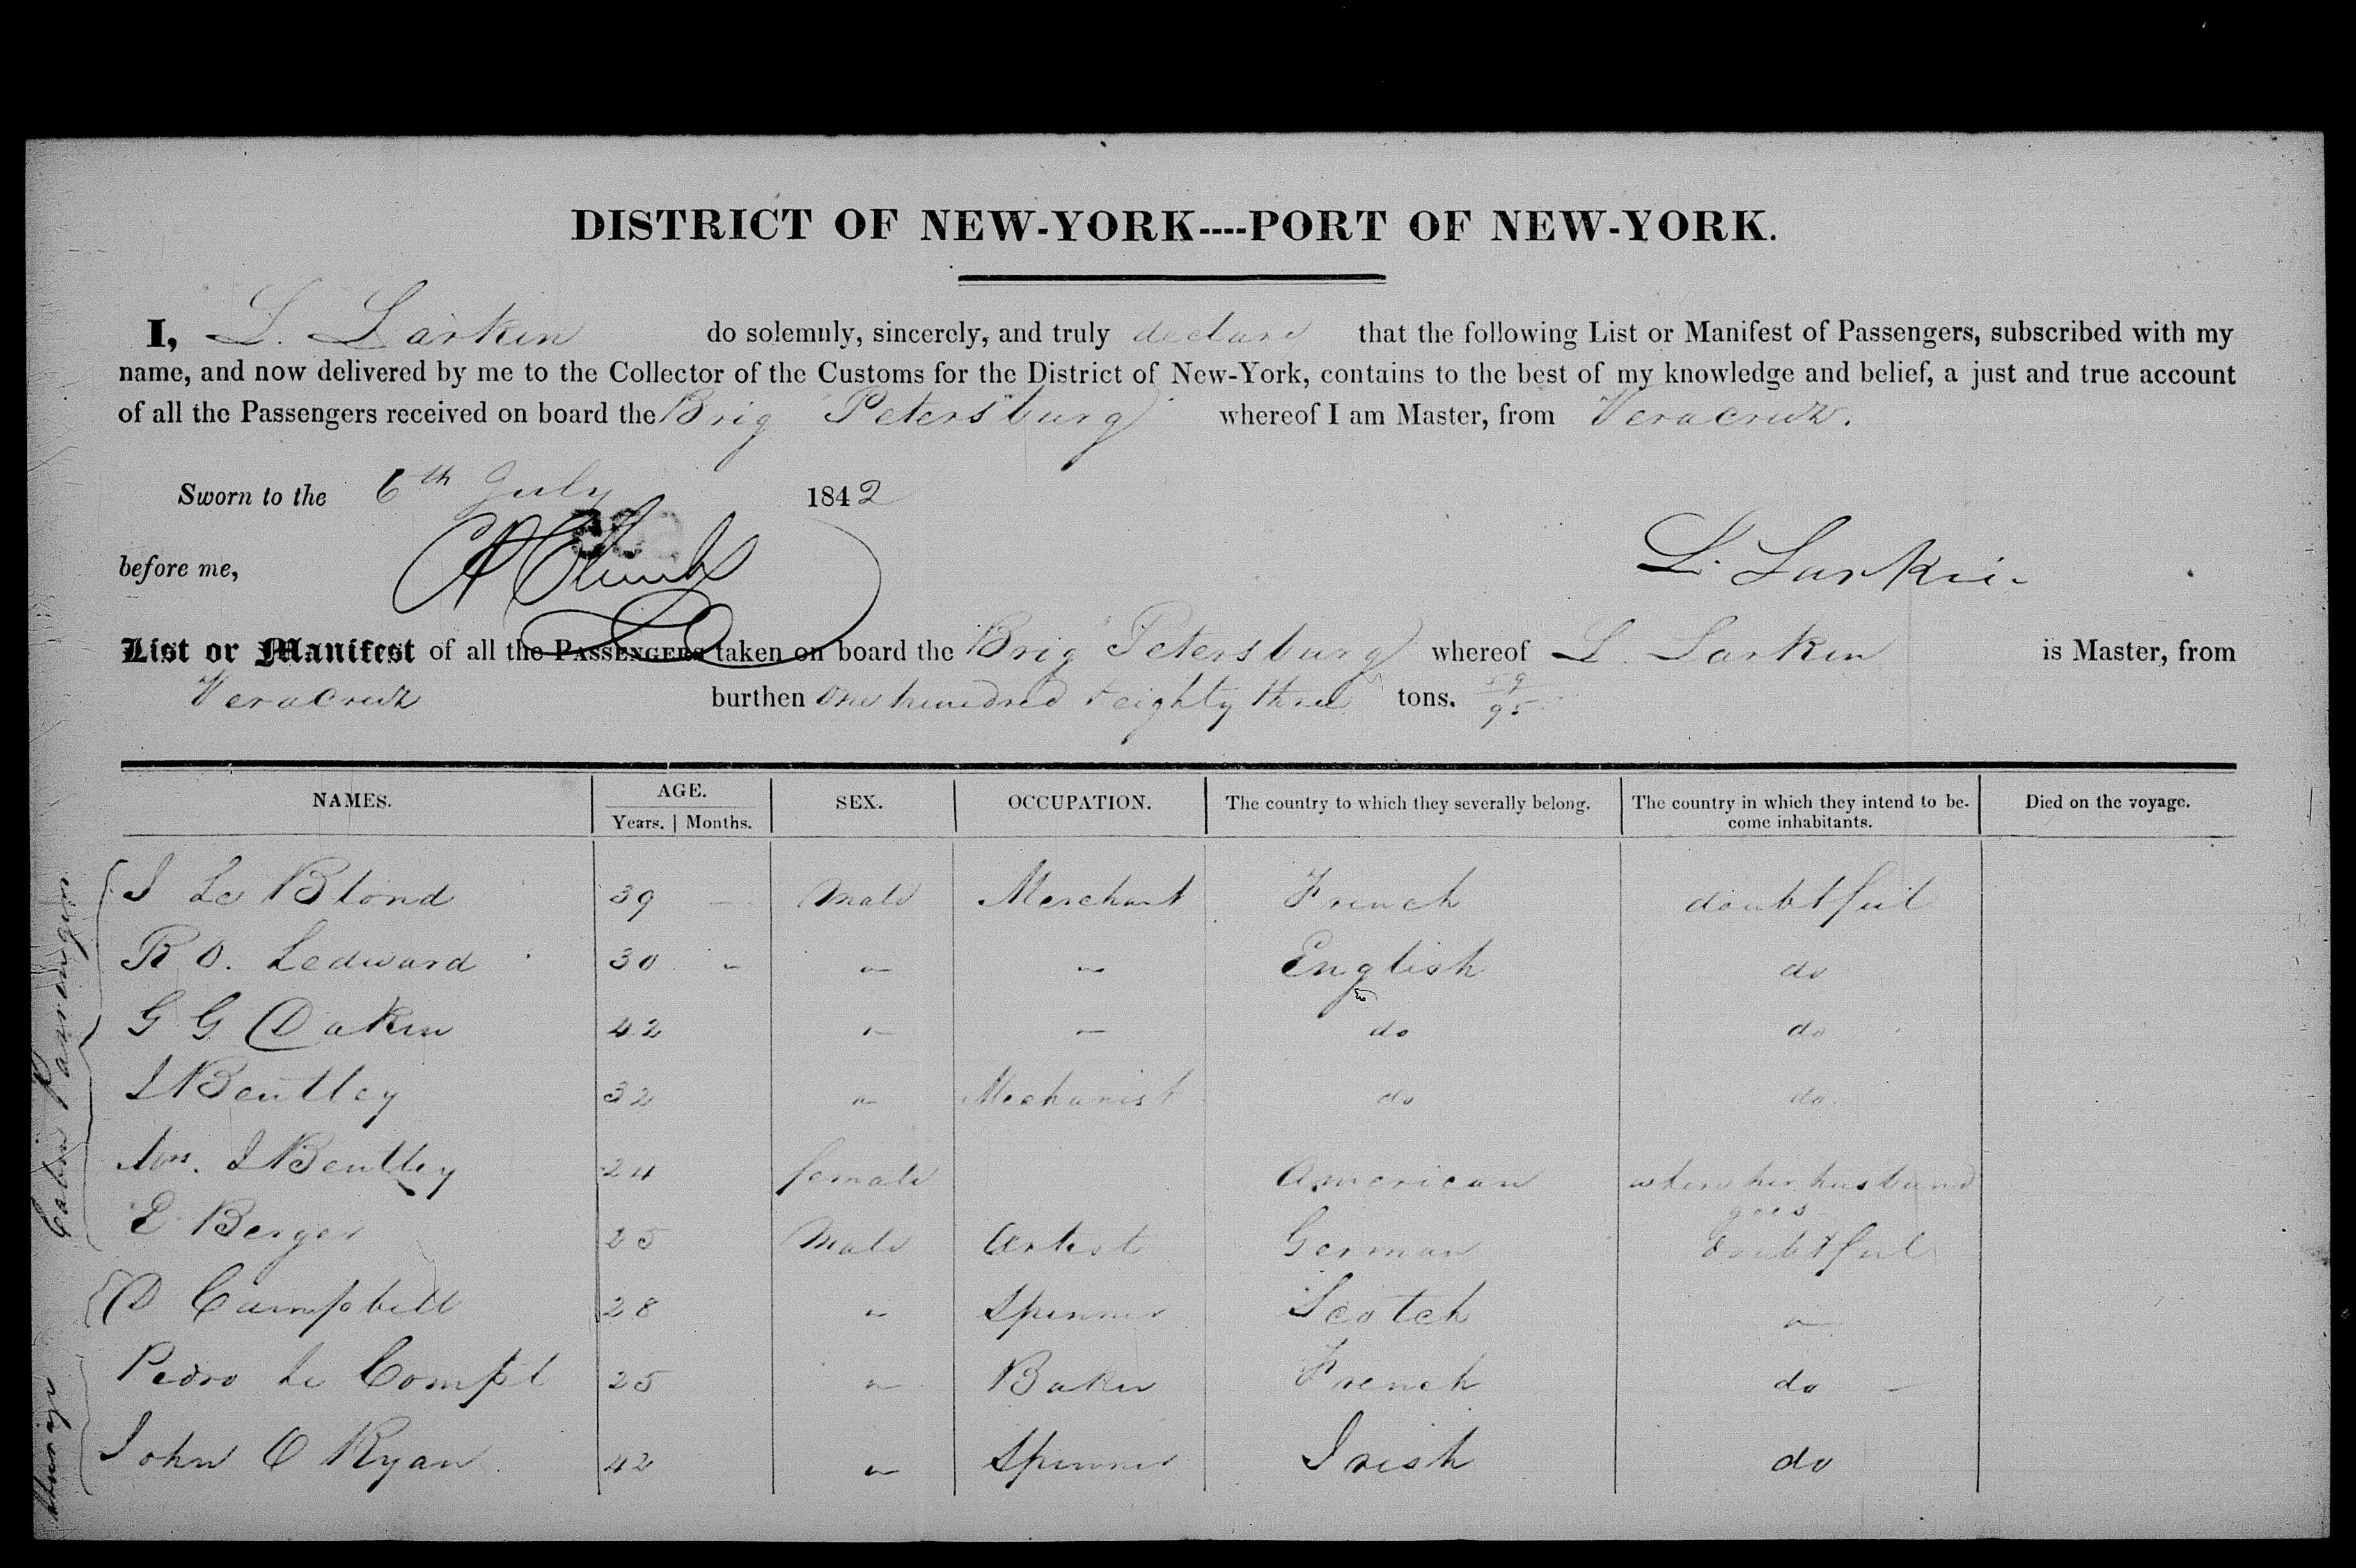 DISTRICT OF NEW-YORK----PORT OF NEW-YORK.
I, L. Larkin do solemnly, sincerely, and truly declare that the following List or Manifest of Passengers, subscribed with my
name, and now delivered by me to the Collector of the Customs for the District of New-York, contains to the best of my knowledge and belief, a just and true account
of all the Passengers received on board the Brig Petersburg whereof I am Master, from Veracruz.
Sworn to the 6th July 1842
before me,
L. Larkin
List or Manifest of all the PASSENGERS taken on board the Brig Petersburg whereof L. Larkin is Master, from
Veracruz burthen one hundred & eighty three tons. 59/95
NAMES. AGE. SEX. OCCUPATION. The country to which they severally belong. The country in which they intend to be-
Years. Months. come inhabitants. Died on the voyage.
Cabin Passengers
I Le Blond 39 - Male Merchant French doubtful
R O. Ledward 30 " " " English do
G G Dakin 42 " " do do
I Bentley 32 " Mechanist do do
Mrs. I Bentley 24 female American where her husband
goes
E Berger 25 Male Artist German doubtful
D Campbell 28 " Spinner Scotch "
Steerage
Pedro Le Compt 25 " Baker French do
John O Ryan 42 " Spinner Irish do